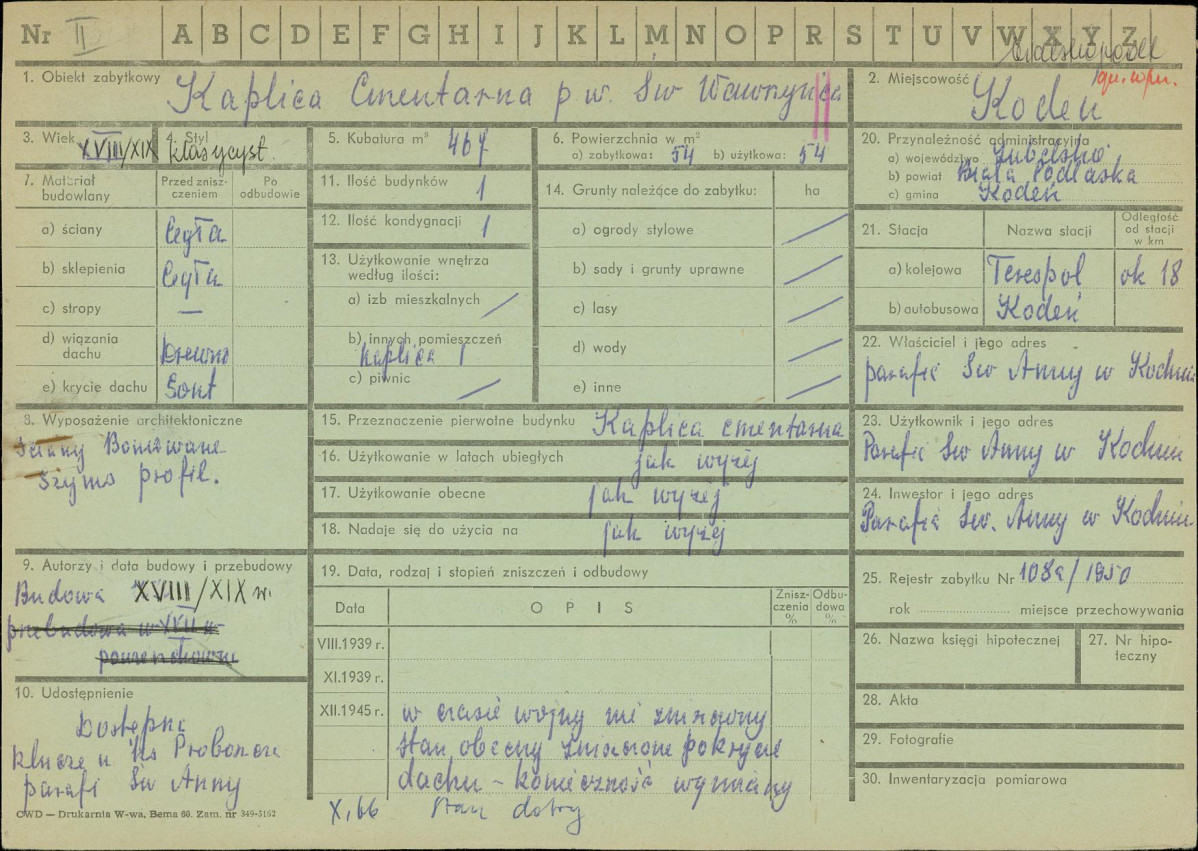 Nr II A B C D E F G H I J K L M N O P R S T U V W X Y Z
1. Obiekt zabytkowy Kaplica Cmentarna p.w. Św Wawrzyńca
2. Miejscowość Kodeń
3. Wiek XVIII/XIX
4. Styl klasycyst.
5. Kubatura m³ 467
6. Powierzchnia w m²
a) zabytkowa: 54 b) użytkowa: 54
20. Przynależność administracyjna
a) województwo Lubelskie
b) powiat Biała Podlaska
c) gmina Kodeń
7. Materiał budowlany
Przed zniszczeniem
Po odbudowie
a) ściany Cegła
b) sklepienia Cegła
c) stropy —
d) wiązania dachu Drewno
e) krycie dachu Gont
11. Ilość budynków 1
12. Ilość kondygnacji 1
13. Użytkowanie wnętrza
według ilości:
a) izb mieszkalnych /
b) innych pomieszczeń
kaplica 1
c) piwnic /
14. Grunty należące do zabytku: ha
a) ogrody stylowe /
b) sady i grunty uprawne /
c) lasy /
d) wody /
e) inne /
21. Stacja Nazwa stacji Odległość od stacji w km
a) kolejowa Terespol ok 18
b) autobusowa Kodeń
22. Właściciel i jego adres
parafia Św Anny w Kodniu
8. Wyposażenie architektoniczne
Ściany Boniowane
Gzyms profil.
15. Przeznaczenie pierwotne budynku Kaplica cmentarna
16. Użytkowanie w latach ubiegłych jak wyżej
17. Użytkowanie obecne jak wyżej
18. Nadaje się do użycia na jak wyżej
23. Użytkownik i jego adres
Parafia Św Anny w Kodniu
24. Inwestor i jego adres
Parafia Św. Anny w Kodniu
9. Autorzy i data budowy i przebudowy
Budowa XVIII/XIX w.
przebudowa w XVII w
10. Udostępnienie
Dostępna
klucze u Ks Proboszcza
parafi Św Anny
19. Data, rodzaj i stopień zniszczeń i odbudowy
Data OPIS Zniszczenia % Odbudowa %
VIII.1939 r.
XI.1939 r.
XII.1945 r. w czasie wojny nie zniszczony
stan obecny zniszczone pokrycie
dachu – konieczność wymiany
X.66 stan dobry
25. Rejestr zabytku Nr 108a/1950
rok miejsce przechowywania
26. Nazwa księgi hipotecznej
27. Nr hipoteczny
28. Akta
29. Fotografie
30. Inwentaryzacja pomiarowa
CWD — Drukarnia W-wa, Bema 60. Zam. nr 349-5162